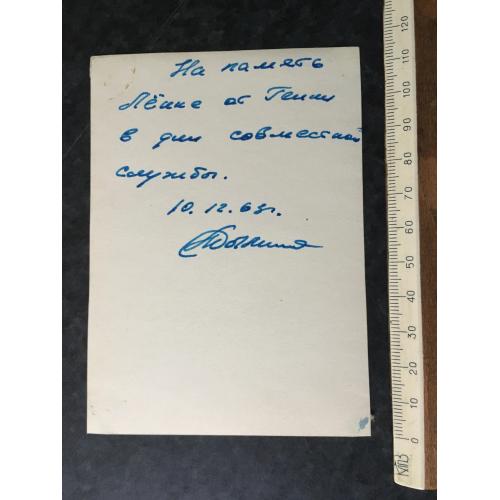 На память
Лёнке от Генки
в дни совместной
службы.
10.12.63г.
120
110
100
90
80
70
60
50
40
30
20
10
0